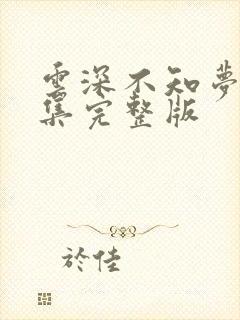 雲深不知夢
集完整版
於佳